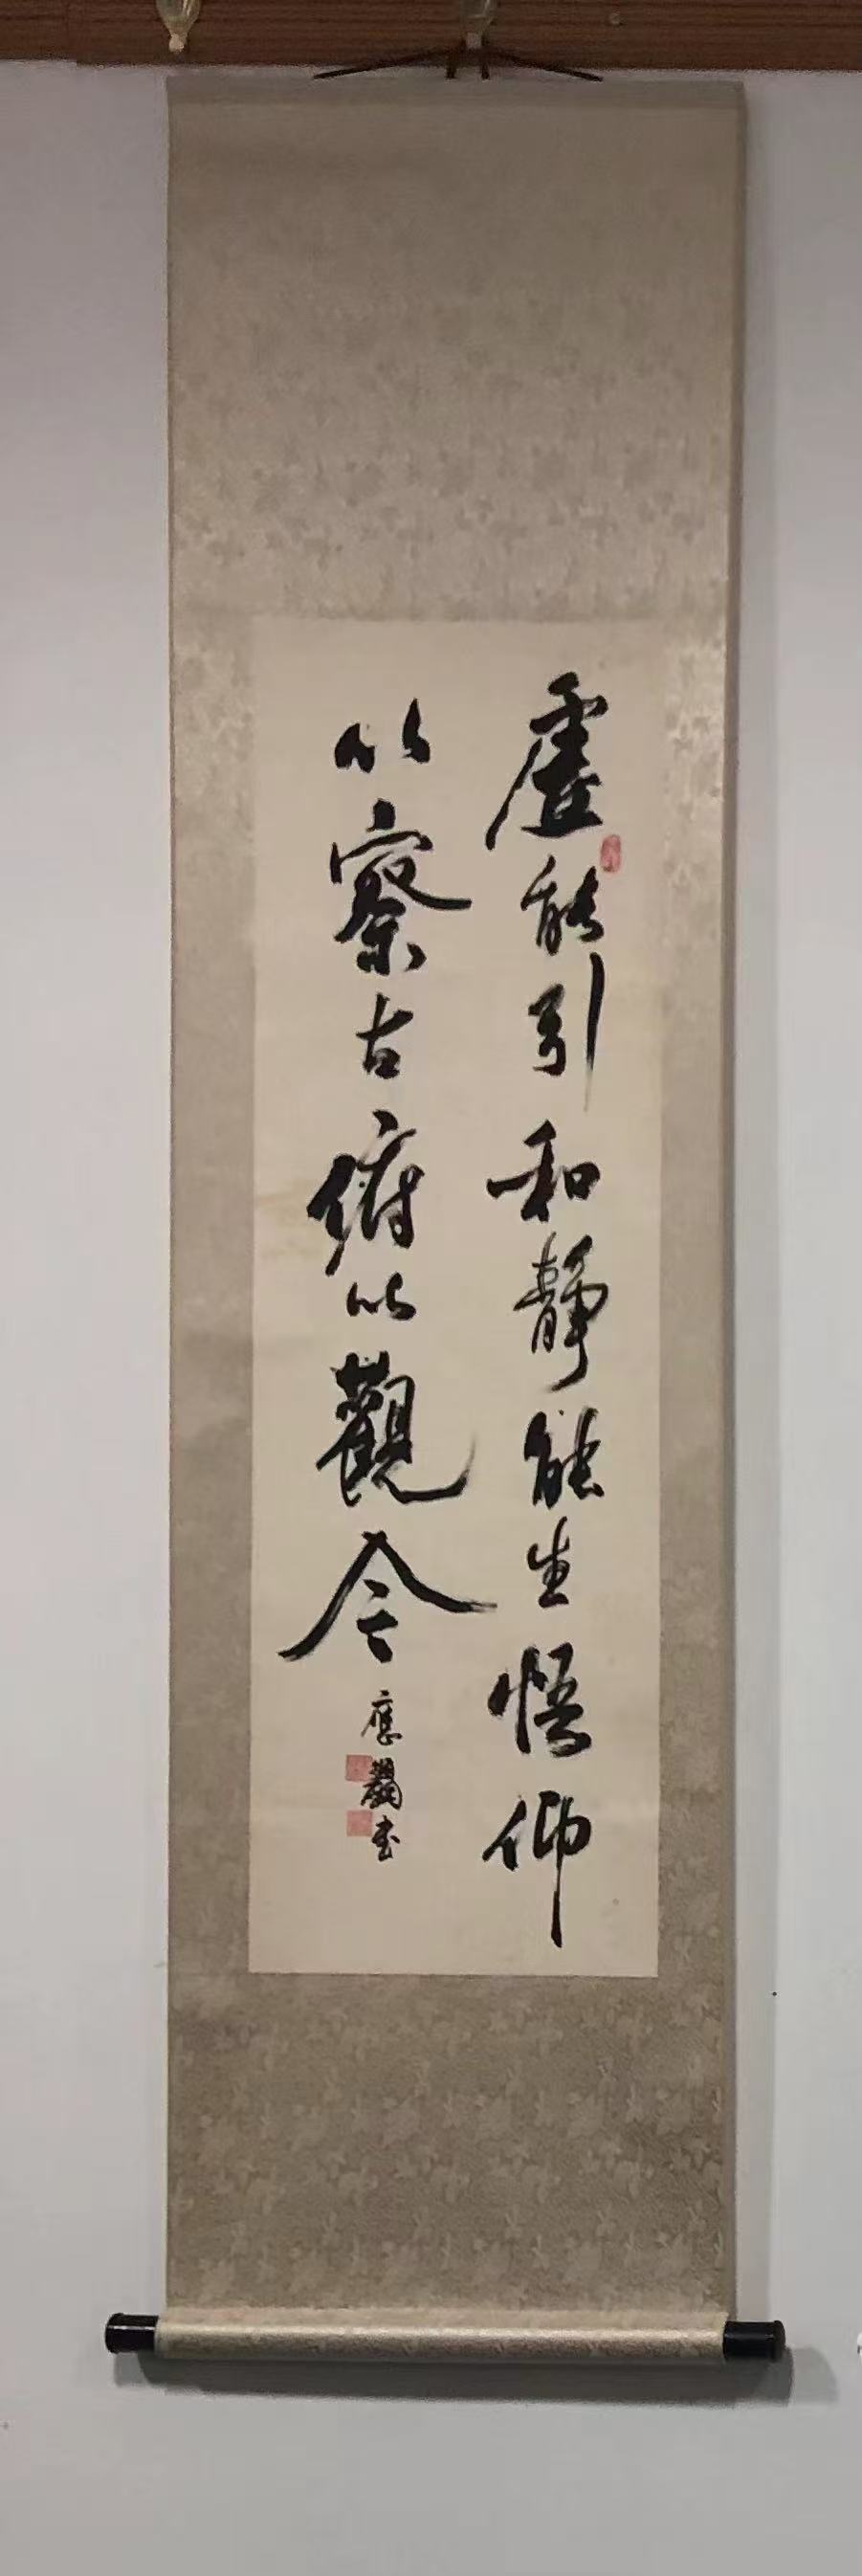 虛能引和靜能生悟仰
以察古俯以觀今
應鶴書